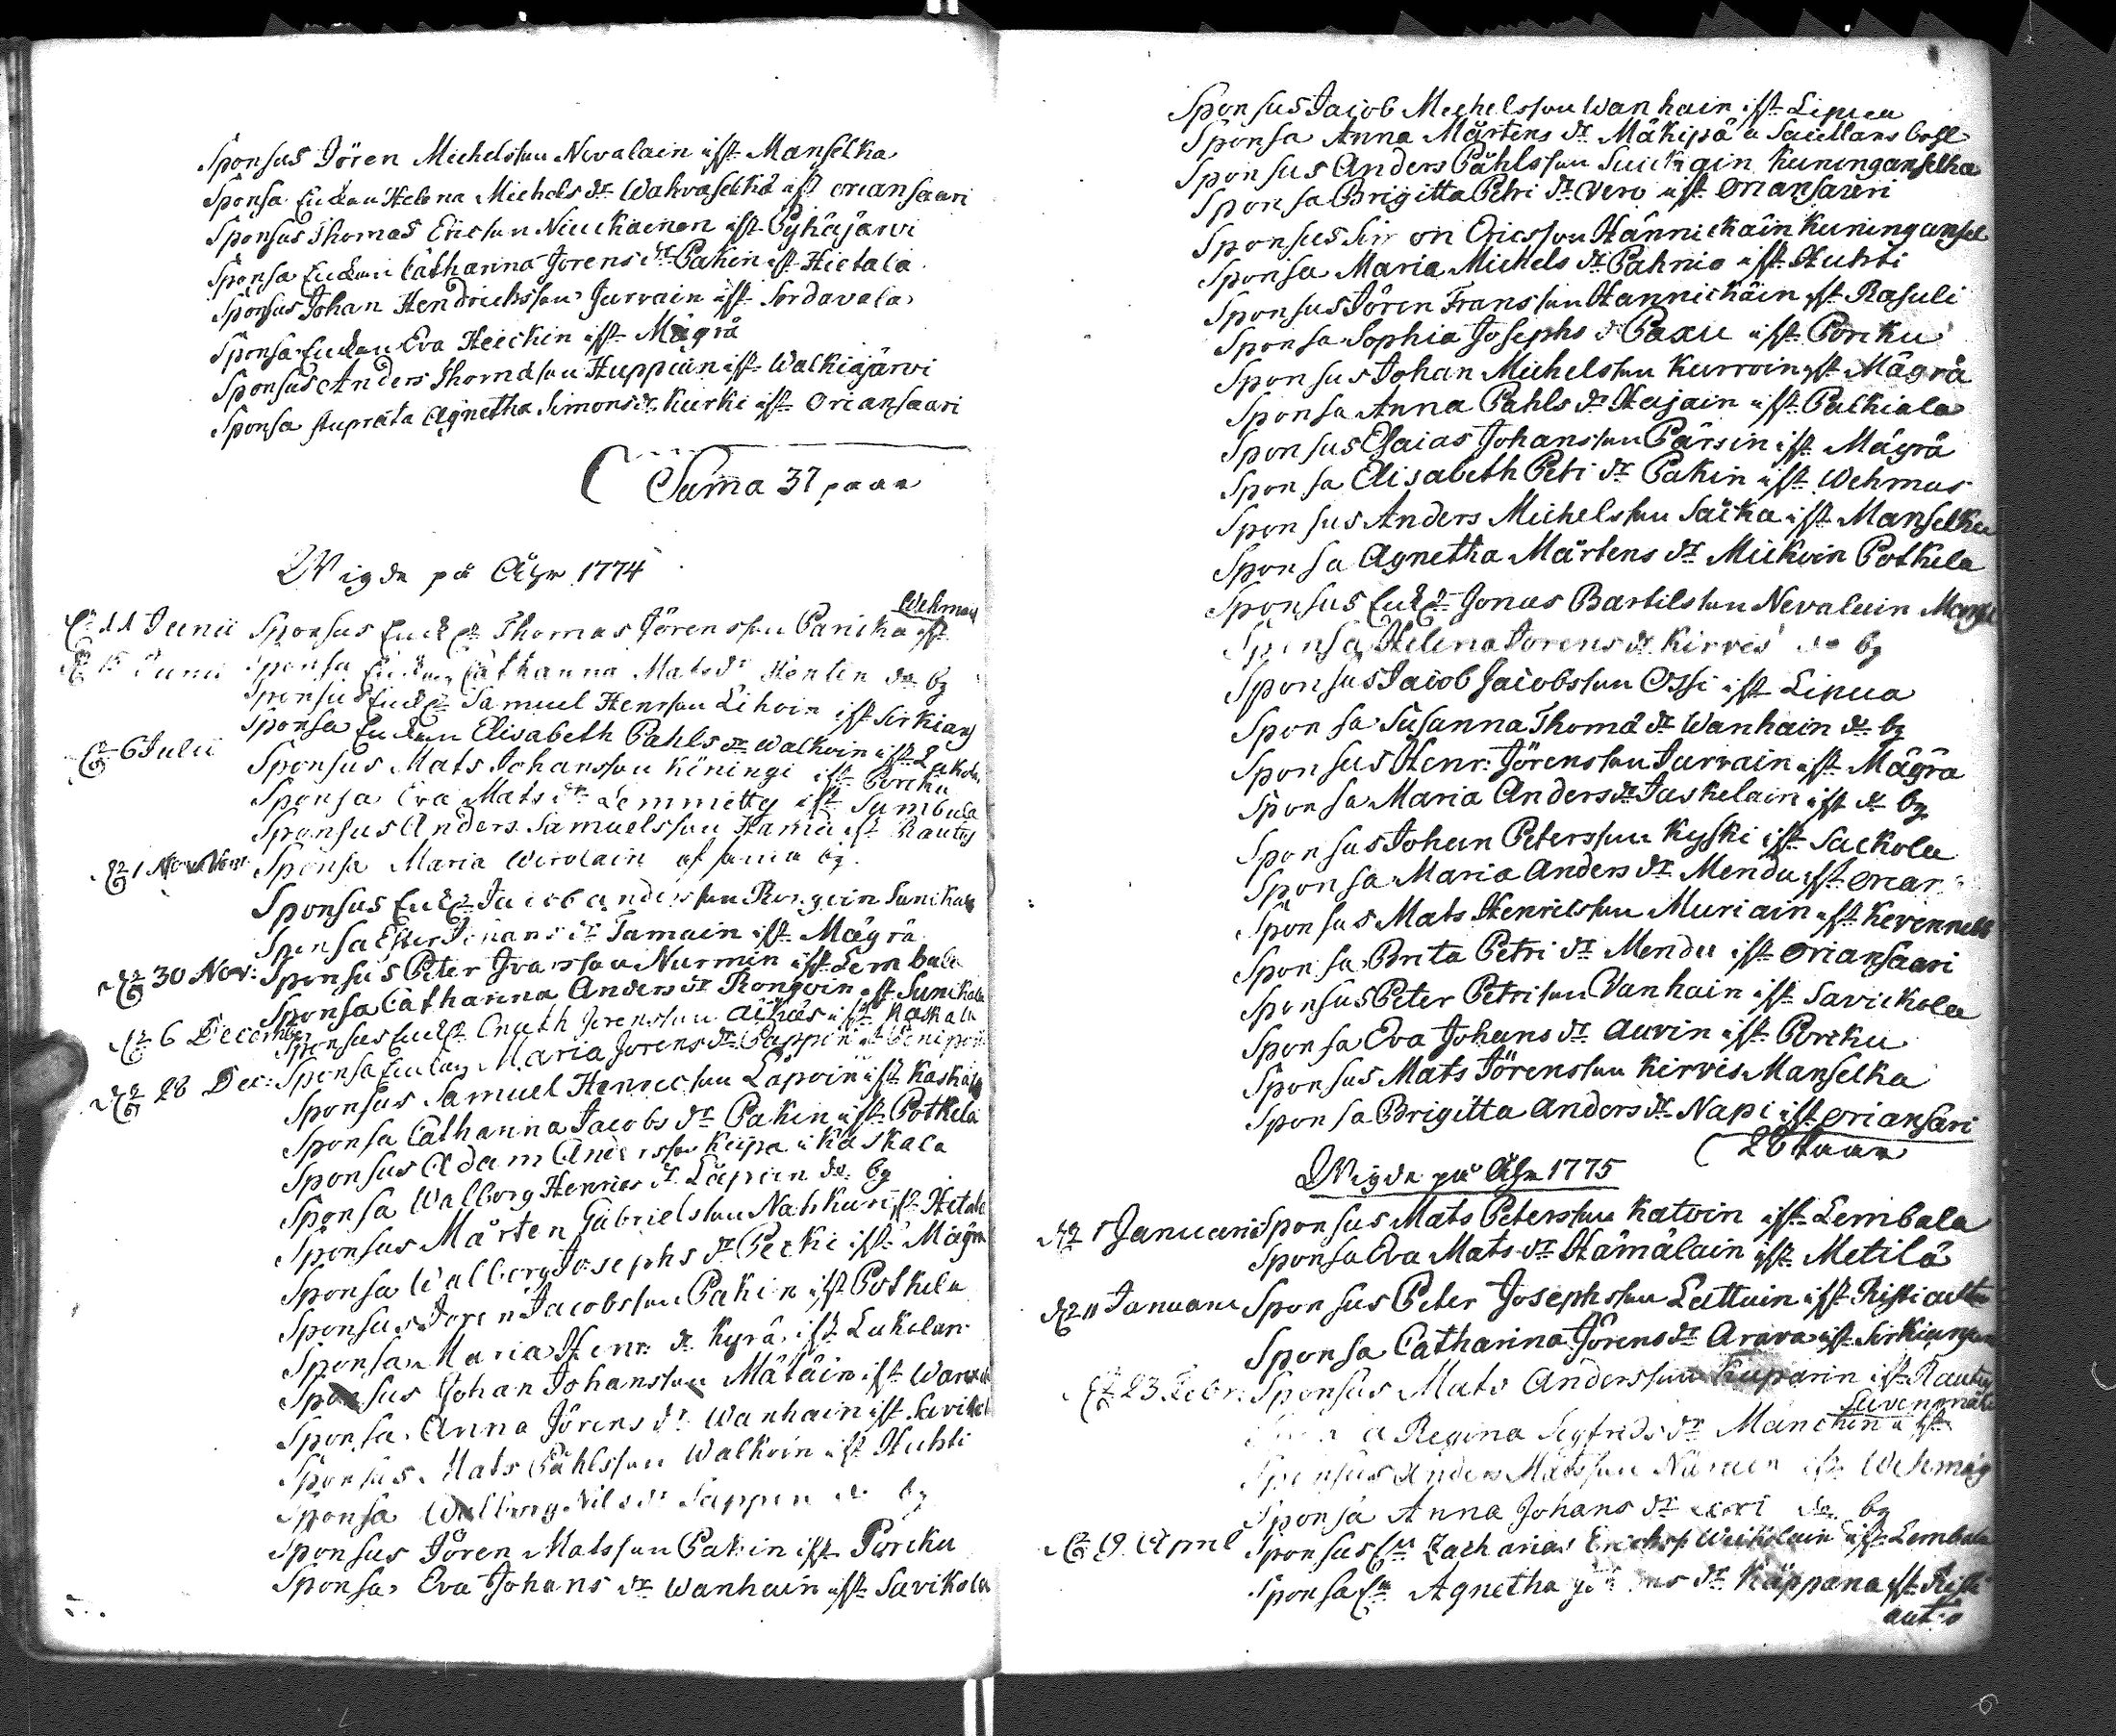 Sponsus Jören Michelsson Nevalain ifrå Manselka
Sponsa Enckan Helena Michels dr Wahvaselkä ifrå oriansaari
Sponsus Thomas Ericsson Nieuckainen ifrå Pyhäjärvi
Sponsa Enckan Catharina Jörens dr Pakin ifrå Hietala
Sponsus Johan Hendrichsson Jurvain ifrå Sordavala
Sponsa Enckan Eva Heickin ifrå Mägrä
Sponsus Anders Thomasson Huppiain ifrå Walkiajärvi
Sponsa stuprata Agnetha Simons dr Kurki ifrå Oriansaari
Suma 37 paar
Wigde på Åhr 1774
Wehmas
d 11 Junii Sponsus Enckl Thomas Jörensson Parikka ifrå
d 15 Junii Sponsa Enckan Catharina Mats dr Hentin do by
Sponsus Enckl Samuel Hensson Lihvin ifrå Sirkians
Sponsa Enckan Elisabeth Pahls dr Walkoin ifrå
d 6 Julii Sponsus Mats Johansson Kiningi ifrå Porcku
Sponsa Eva Mats dr Lemmetty ifrå Sumbula
Sponsus Anders Samuelsson Hama ifrå Rautus
d 1 Sponsa Maria Wirolain af sama by
Sponsus Enckl Jacob andersson Rongoin Sunikala
Sponsa Ester Johans dr Tamain ifrå Mägrä
d 30 Nov: Sponsus Peter Ivarsson Nurmin ifrå Lembala
Sponsa Catharina Anders dr Rongoin ifrå Sunikala
d 6 December Sponsus Enckl Cnuth Jörensson Äikäs ifrå Kaskala
Sponsa Enckan Maria Jörens dr Pappin ifrå
d 28 Dec: Sponsus Samuel Henricsson Läpoin ifrå Kaskala
Sponsa Catharina Jacobs dr Pakin ifrå Potkela
Sponsus Adam Andersson Kiipa Kaskala
Sponsa Walborg Henrics dr Läpoin do by
Sponsus Mårten Gabrielsson Nahkuri ifrå Hietala
Sponsa Walborg Josephs dr Pecki ifrå Mägrä
Sponsus Jören Jacobsson Pakin ifrå Potkela
Sponsa Maria Henr: dr Kyrä ifrå
Sponsus Johan Johansson Mätäin ifrå
Sponsa Anna Jörens dr Wanhain ifrå Savikola
Sponsus Mats Påhlsson Walkoin ifrå Huhti
Sponsa Walborg Nils dr Sappin do by
Sponsus Jören Matsson Pakin ifrå Porcku
Sponsa Eva Johans dr Wanhain ifrå Savikola
Sponsus Jacob Michelsson Wanhain ifrå Lipua
Sponsa Anna Mårtens dr Mäkipä
Sponsus Anders Påhlsson Suickain Kuninganselka
Sponsa Brigitta Petri dr Vero ifrå Oriansaari
Sponsus Simon Ericsson Hännickäin Kuningansel
Sponsa Maria Michels dr Pahnio ifrå Huhti
Sponsus Jören Fransson Hannickäin ifrå Rasuli
Sponsa Sophia Josephs dr Paxu ifrå Porcku
Sponsus Johan Michelsson Kurvoin ifrå Mägrä
Sponsa Anna Pahls dr Hajain ifrå Palkiala
Sponsus Esaias Johansson Pärsin ifrå Mägrä
Sponsa Elisabeth Petri dr Pakin ifrå Wehmas
Sponsus Anders Michelsson Säckä ifrå Manselka
Sponsa Agnetha Mårtens dr Mickoin Potkela
Sponsus Enckl Jonas Bartilsson Nevalain Mansel
Sponsa Helena Jörens dr Kirves do by
Sponsus Jacob Jacobsson Ossi ifrå Lipua
Sponsa Susanna Thoma dr Wanhain do by
Sponsus Henr: Jörensson Jurvain ifrå Mägrä
Sponsa Maria Anders dr Juskelain ifrå do by
Sponsus Johan Petersson Kyski ifrå Sackola
Sponsa Maria Anders dr Mendu ifrå orian
Sponsus Mats Henricsson Muriain ifrå Kevenneb
Sponsa Brita Petri dr Mendu ifrå oriansaari
Sponsus Peter Petrison Vanhain ifrå Savickola
Sponsa Eva Johans dr Auvin ifrå Porcku
Sponsus Mats Jörensson Kirvis Manselka
Sponsa Brigitta Anders dr Napi ifrå oriansari
26 paar
Wigde på Åhr 1775
d 1 Januarii Sponsus Mats Petersson Katoin ifrå Lembala
Sponsa Eva Mats dr Hämäläin ifrå Metilä
d 11 Januarii Sponsus Peter Josephsson Lattuin ifrå Ristiautio
Sponsa Catharina Jörens dr Arava ifrå
d 23 Febr: Sponsus Mats Andersson Kuparin ifrå Rautus
Sponsa Regina Segfreds dr Manchin ifrå
Sponsus Anders Matsson ifrå Wehmas
Sponsa Anna Johans dr do by
d 19 April Sponsus En Zacharias Erichs Weikolain ifrå Lembala
Sponsa En Agnetha dr Käppana ifrå Risti
autio